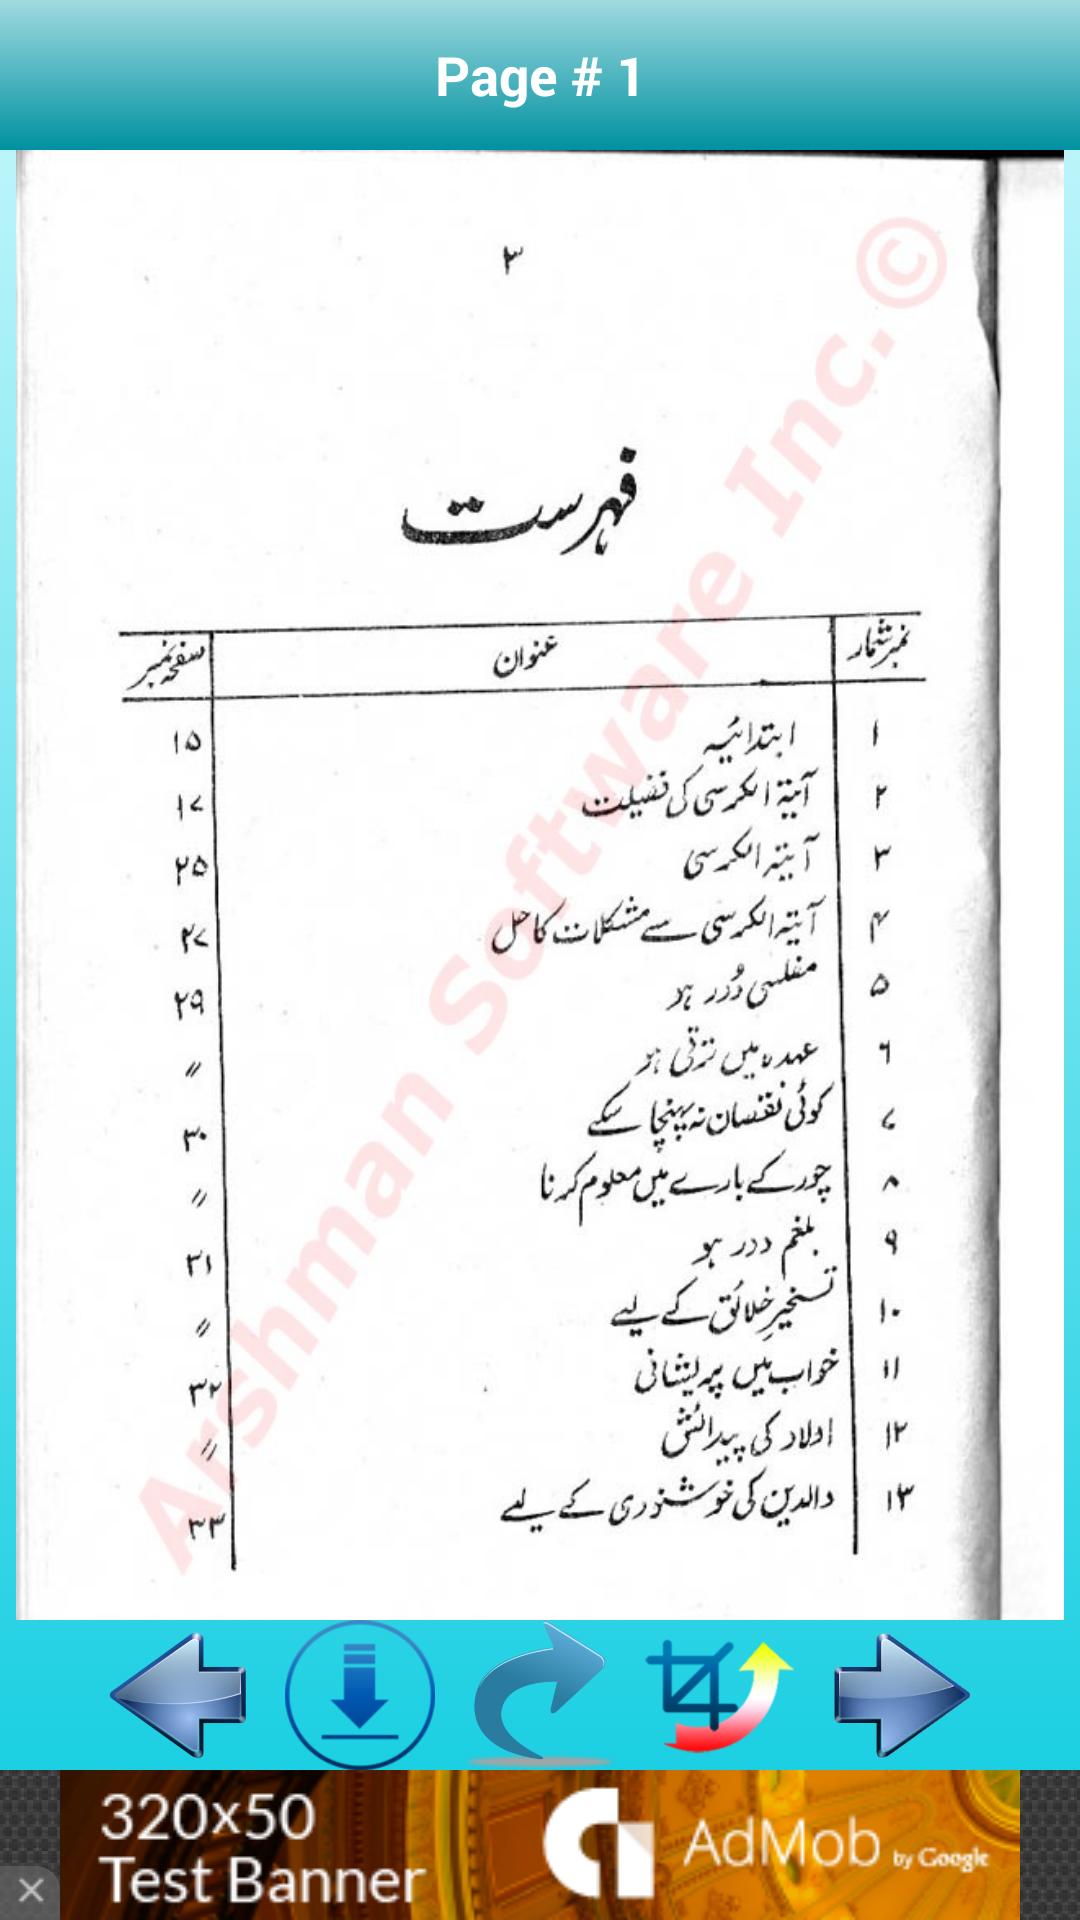 Page # 1
۳
فہرست
نمبر شمار عنوان صفحہ نمبر
۱ ابتدائیہ ۱۵
۲ آیۃ الکرسی کی فضیلت ۱۷
۳ آیۃ الکرسی ۲۵
۴ آیۃ الکرسی سے مشکلات کا حل ۲۷
۵ مفلسی دُور ہو ۲۹
۶ عہدہ میں ترقی ہو 〃
۷ کوئی نقصان نہ پہنچا سکے ۳۰
۸ چور کے بارے میں معلوم کرنا 〃
۹ بلغم دور ہو ۳۱
۱۰ تسخیرِ خلائق کے لیے 〃
۱۱ خواب میں پریشانی ۳۲
۱۲ اولاد کی پیدائش 〃
۱۳ والدین کی خوشنودی کے لیے ۳۳
Arshman Software Inc. ©
320x50
Test Banner
AdMob by Google